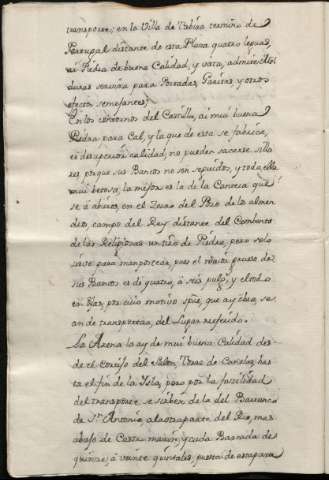 transportes; en la Villa de Tabira termino de
Portugal distante de esta Plaza quatro leguas,
ai Piedra de buena Calidad, y vara, admite Mol
duras servira para Portadas, Garitas y otros
efectos semejantes;
En los contornos del Castillo, ai mui buena
Piedra para Cal, y la que de esta se fabrica,
es de superior calidad, no pueden sacarse silla
res porque sus Bancos no son seguidos, y toda ella
mui betosa, la mejor es la de la Cantera que
se á abierto, en el
dito campo del Rey distante del Combento
de las Religiosas un tiro de Piedra, pero solo
sirve para mamposteria, pues el maior grueso de
sus Bancos es de quatro, á seis pulg.s y el todo
en
an de transportar, del Lugar referido.
La Arena la ay de mui buena Calidad des
de el
ta el fin de la Isla, pero por la facilidad
del transporte se
de Sn. Antonio, á la otra parte del Rio, mas
abajo de Castro marin, y cada Barcada de
quince, á veinte quintales, puesta de esta parte